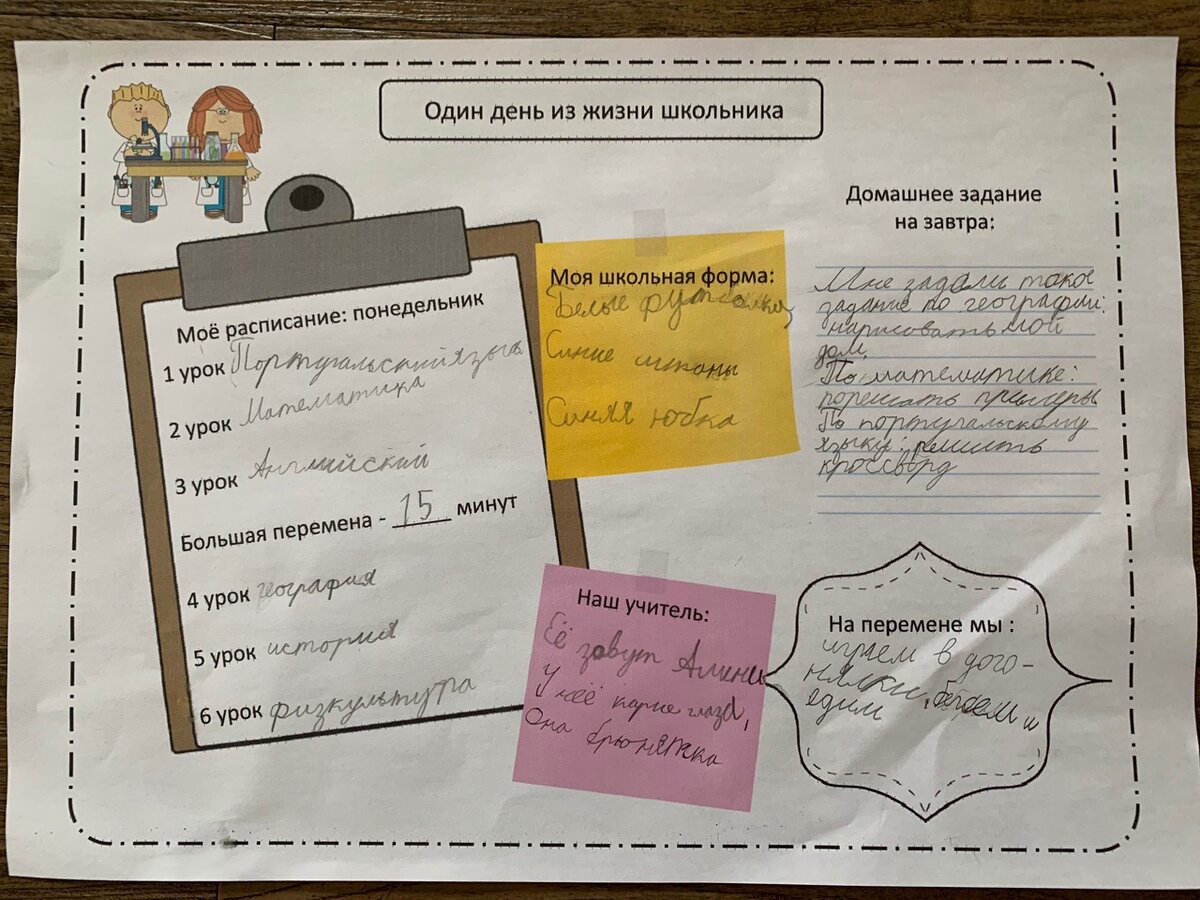 Один день из жизни школьника
Моё расписание: понедельник
1 урок Португальский язык
2 урок Математика
3 урок Английский
Большая перемена - 15 минут
4 урок география
5 урок история
6 урок физкультура
Моя школьная форма:
Белые футболка,
Синие штаны
Синяя юбка
Наш учитель:
Её зовут
У неё карие глаза,
Она брюнетка
Домашнее задание
на завтра:
Мне задали такое
задание по географии:
нарисовать мой
дом.
По математике:
порешать примеры
По португальскому
языку: решить
кроссворд
На перемене мы :
играем в дого-
нялки, бегаем и
едим